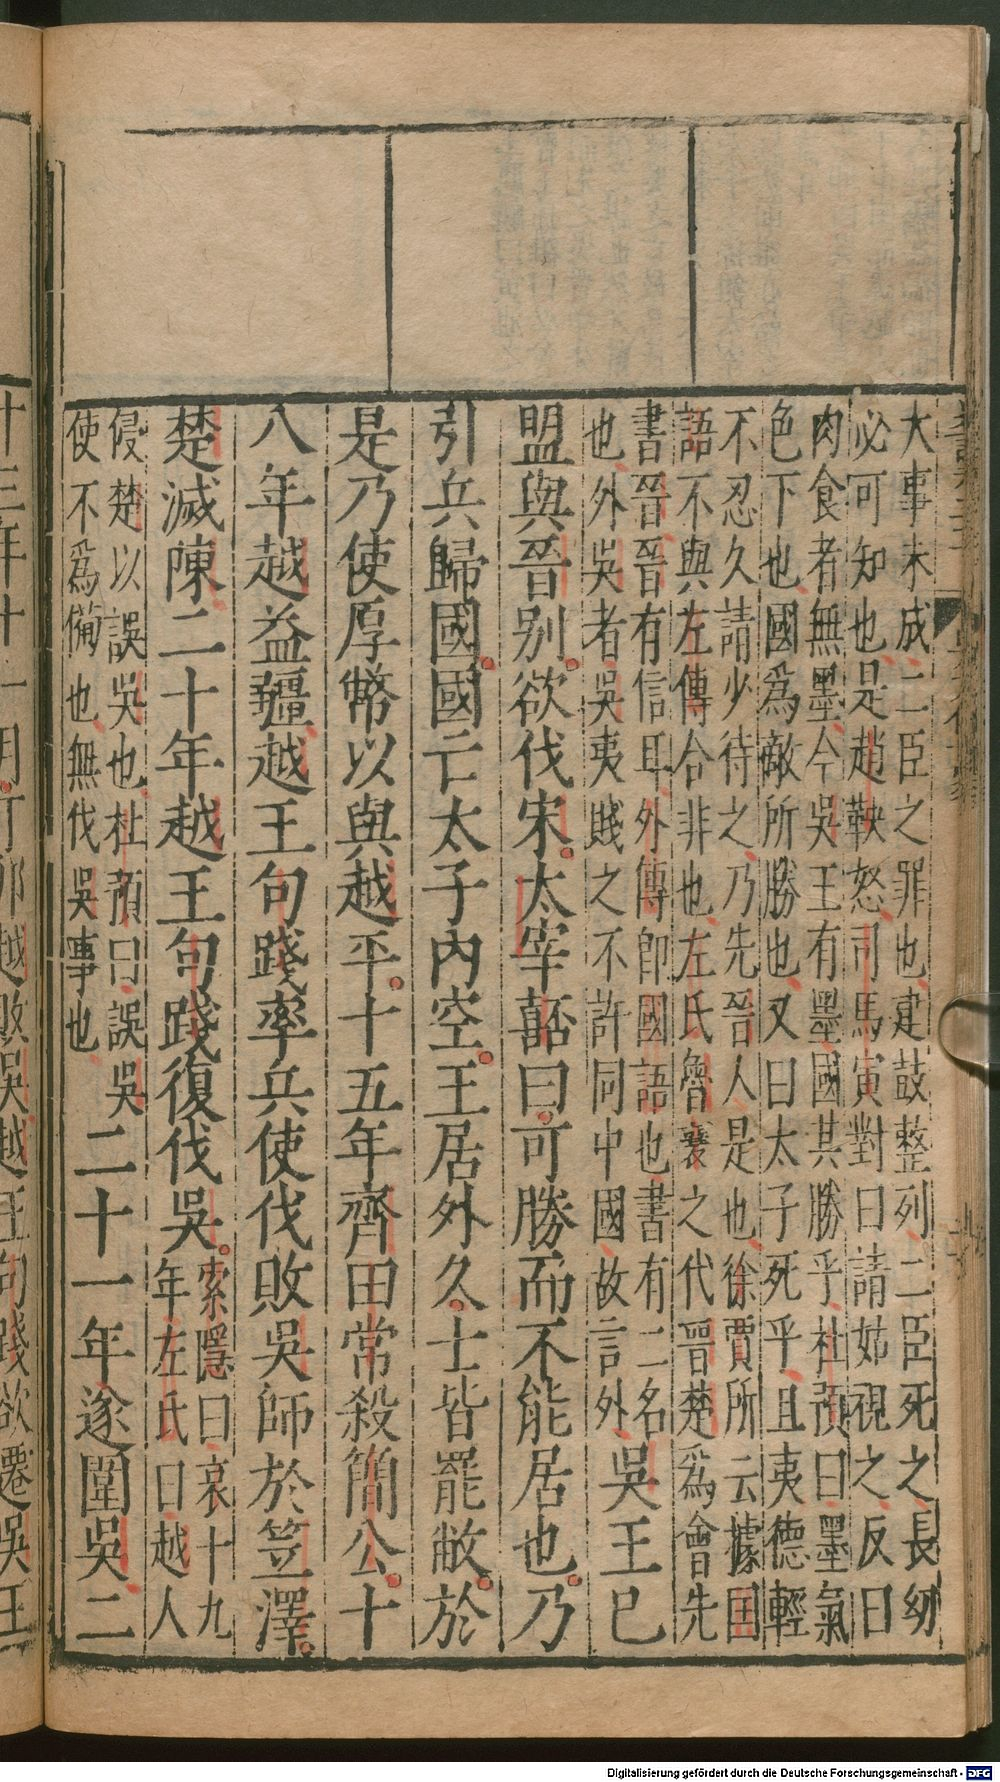 大事未成二臣之罪也建鼓整列二臣死之長幼
必可知也是趙鞅怒司馬寅對曰請姑視之反曰
肉食者無墨今吳王有墨國其勝乎杜預曰墨氣
色下也國爲敵所勝也又曰太子死乎且夷德輕
不忍久請少待之乃先晉人是也徐賈所云據囯
語不與左傳合非也左氏魯襄之代晉楚爲會先
書晉晉有信耳外傳即國語也書有二名
也外吳者吳夷賤之不許同中國故言外
吳王已
盟與晉别欲伐宋太宰嚭曰可勝而不能居也乃
引兵歸國國亡太子內空王居外久士皆罷敝於
是乃使厚幣以與越平十五年齊田常殺簡公十
八年越益疆越王句踐率兵使伐敗吳師於笠澤
楚滅陳二十年越王句踐復伐吳
索隱曰哀十九
年左氏曰越人
侵楚以誤吳也杜預曰誤吳
使不爲備也無伐吳事也
二十一年遂圍吳二
十三年十一月丁卯越敗吳越王句踐欲遷吳王
Digitalisierung gefördert durch die Deutsche Forschungsgemeinschaft - DFG